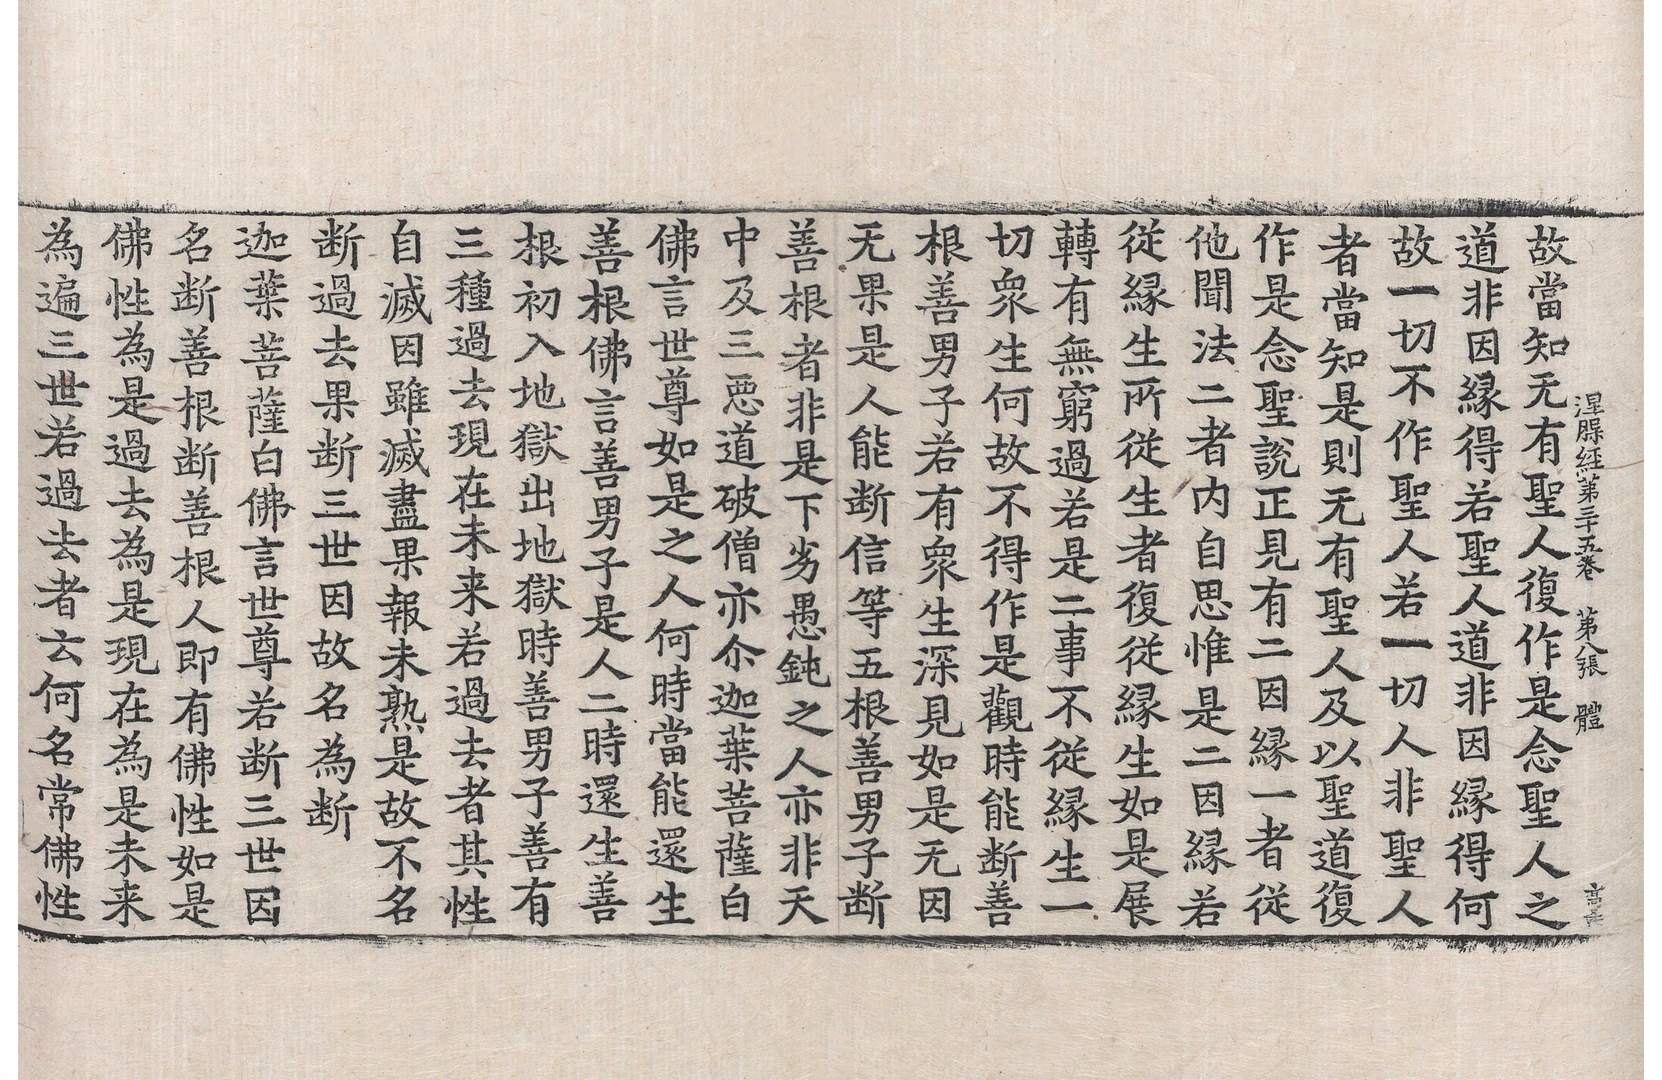 涅槃經第三十五卷　第八張　體
故當知无有聖人復作是念聖人之
道非因縁得若聖人道非因縁得何
故一切不作聖人若一切人非聖人
者當知是則无有聖人及以聖道復
作是念聖說正見有二因縁一者従
他聞法二者内自思惟是二因縁若
従縁生所従生者復従縁生如是展
轉有無窮過若是二事不従縁生一
切衆生何故不得作是觀時能断善
根善男子若有衆生深見如是无因
无果是人能断信等五根善男子断
善根者非是下劣愚鈍之人亦非天
中及三惡道破僧亦尒迦葉菩薩白
佛言世尊如是之人何時當能還生
善根佛言善男子是人二時還生善
根初入地獄出地獄時善男子善有
三種過去現在未来若過去者其性
自滅因雖滅盡果報未熟是故不名
断過去果断三世因故名為断
迦葉菩薩白佛言世尊若断三世因
名断善根断善根人即有佛性如是
佛性為是過去為是現在為是未来
為遍三世若過去者云何名常佛性